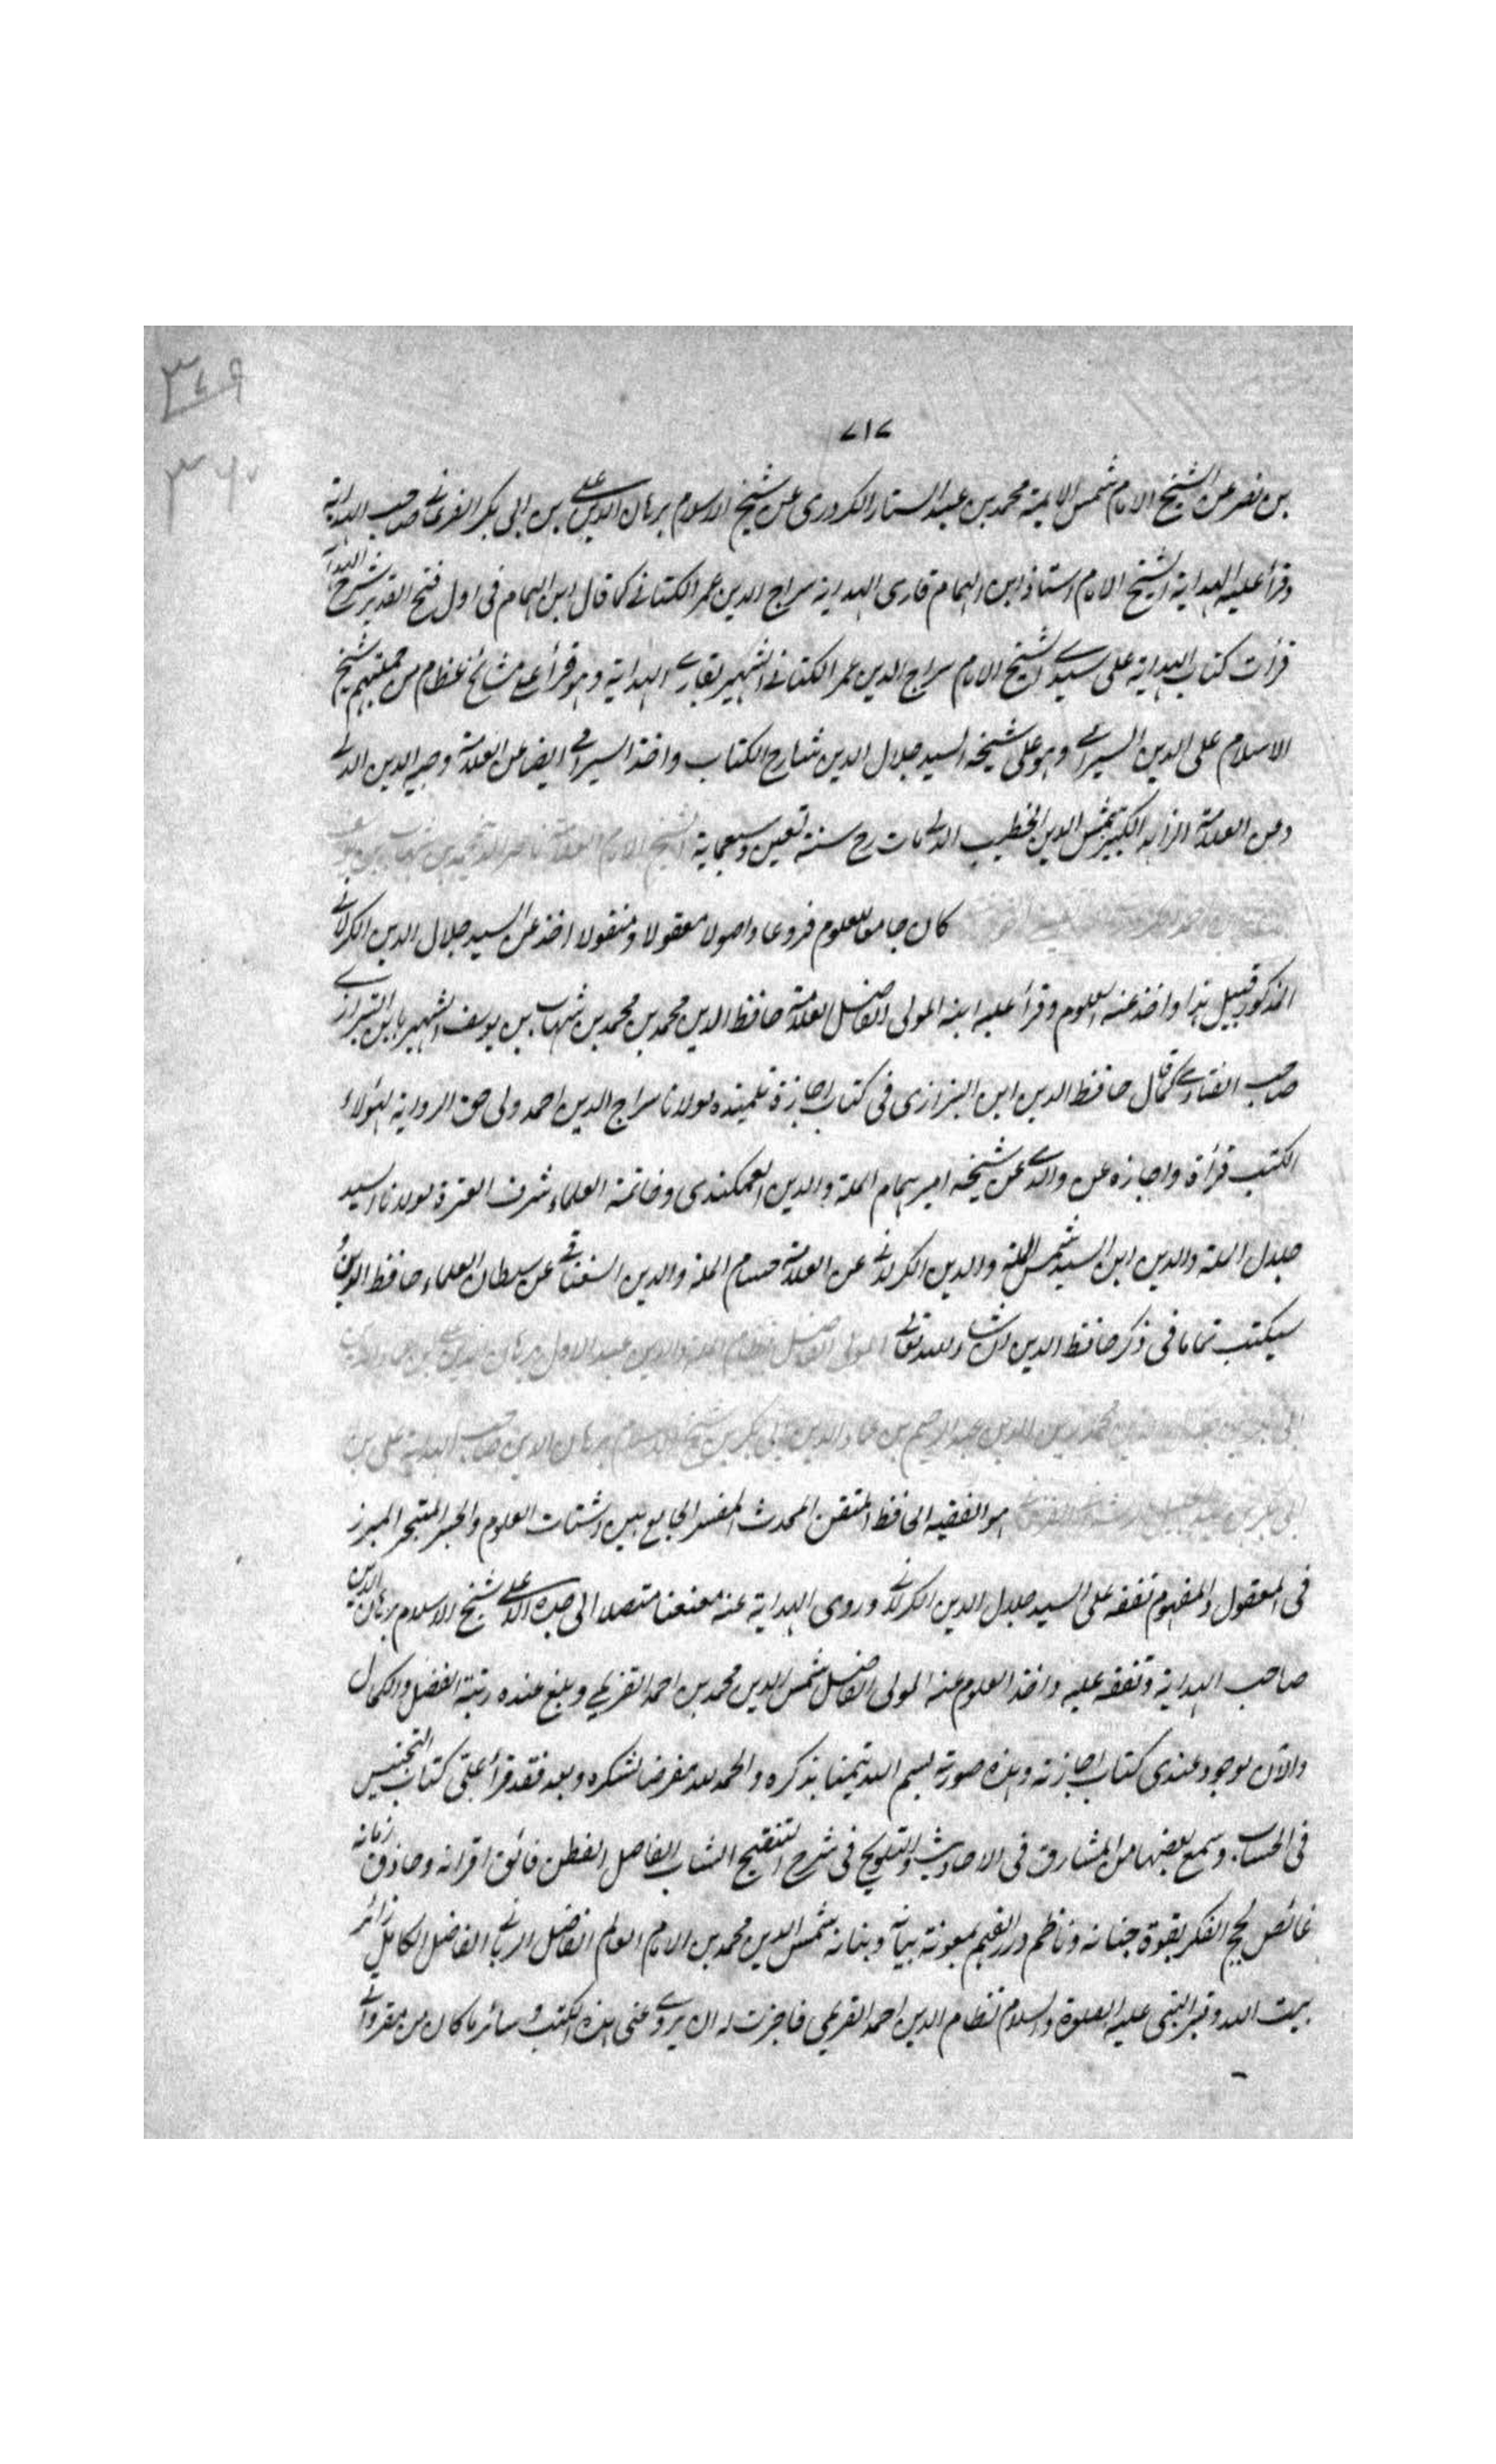 ٣٤٩
٣٦٠
٧١٧
بن نصر عن الشيخ الامام شمس الايمة محمد بن عبد الستار الكردرى عن شيخ الاسلام برهان الدين على بن ابى بكر الفرغانے صاحب الهداية
وقرأ عليه الهداية الشيخ الامام استاذ ابن الهمام قارى الهداية سراج الدين عمر الكتانے كما قال ابن الهمام فى اول فتح القدير شرح الهداية
قرأت كتاب الهداية على سيدے الشيخ الامام سراج الدين عمر الكتانے الشهير بقارے الهداية وهو قرأ على مشائخ عظام من جملتهم شيخ
الاسلام على الدين السيرامے وهو على شيخه السيد جلال الدين شارح الكتاب واخذ السيرامے ايضا عن العلامة وجيه الدين الدلے
وعن العلامة الزاهد الكبير شمس الدين الخطيب الدلے مات رح سنة تسعين وسبعماية الشيخ الامام العلامة ناصر الدين محمد بن شهاب بن يوسف
كان جامعا للعلوم فروعا واصولا معقولا ومنقولا اخذ عن السيد جلال الدين الكرلانے
المذكور قبيل هذا واخذ عنه العلوم وقرأ عليه ابنه المولى الفاضل العلامة حافظ الدين محمد بن محمد بن شهاب بن يوسف الشهير بابن البزازے
صاحب الفتاوے كما قال حافظ الدين ابن البزازى فى كتاب اجازة تلميذه مولانا سراج الدين احمد ولى حق الرواية لهؤلاء
الكتب قرأة واجازه عن والدے عن شيخه امير همام الملة والدين العمكندى وخاتمة العلماء شرف العترة مولانا السيد
جلال الملة والدين ابن السيد شمس الملة والدين الكرلانے عن العلامة حسام الملة والدين السغناقے عن سلطان العلماء حافظ الدين
سيكتب تماما فى ذكر حافظ الدين ان شاء الله تعالے المولى الفاضل نظام الملة والدين عبد الاول برهان الدين على بن عماد الدين
محمد زين الدين عبد الرحيم بن عماد الدين ابى بكر بن شيخ الاسلام برهان الدين صاحب الهداية على بن
ابى بكر بن عبد الجليل الرشدانے هو الفقيه الحافظ المتقن المحدث المفسر الجامع بين اشتات العلوم والحبر المتبحر المبرز
فى المعقول والمفهوم تفقه على السيد جلال الدين الكرلانے وروى الهداية عنه معنعنا متصلا الى جده الاعلى شيخ الاسلام برهان الدين
صاحب الهداية وتفقه عليه واخذ العلوم عنه المولى الفاضل شمس الدين محمد بن احمد القريمے وبلغ عنده رتبة الفضل والكمال
والآن موجود عندى كتاب اجازته وهذه صورته بسم الله تيمنا بذكره والحمد لله مفرضا لشكره وبعد فقد قرأ على كتاب التجنيس
فى الحساب وسمع بعضها من المشارق فى الاحاديث والتلويح فى شرح التنقيح الشاب الفاضل الفطن فائق اقرانه وحاذق زمانه
غائص لجج الفكر بقوة جنانه وناظم درر الفهم بمعونة بيانه وبنانه شمس الدين محمد بن الامام العالم الفاضل الربانے الفاضل الكامل زائر
بيت الله وقبر النبى عليه الصلوة والسلام نظام الدين احمد القريمى فاجزت له ان يروے عنى هذه الكتب و سائر ما كان من مقروآتے